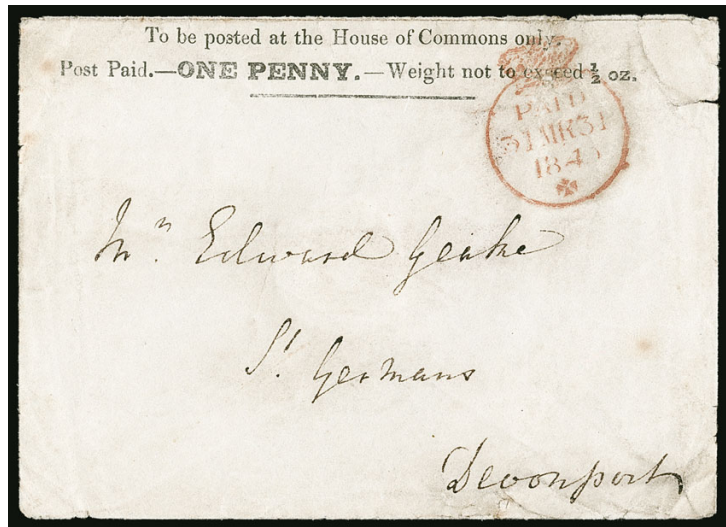 To be posted at the House of Commons only.
Post Paid.—ONE PENNY.—Weight not to exceed ½ oz.
PAID
31 MR 31
184
Mr. Edward Geake
St. Germans
Devonport